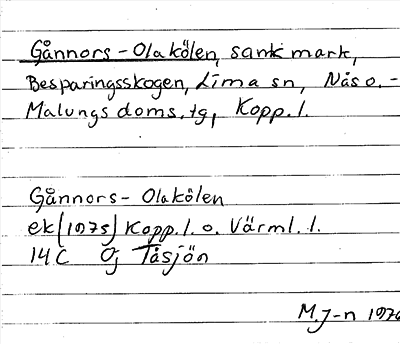 Gånnors-Olakölen, sank mark,
Besparingsskogen, Lima sn, Nås o.-
Malungs doms.tg, Kopp.l.
Gånnors-Olakölen
ek (1975) Kopp.l. o. Värml.l.
14 C Öj Tåsjön
M.J-n 1976